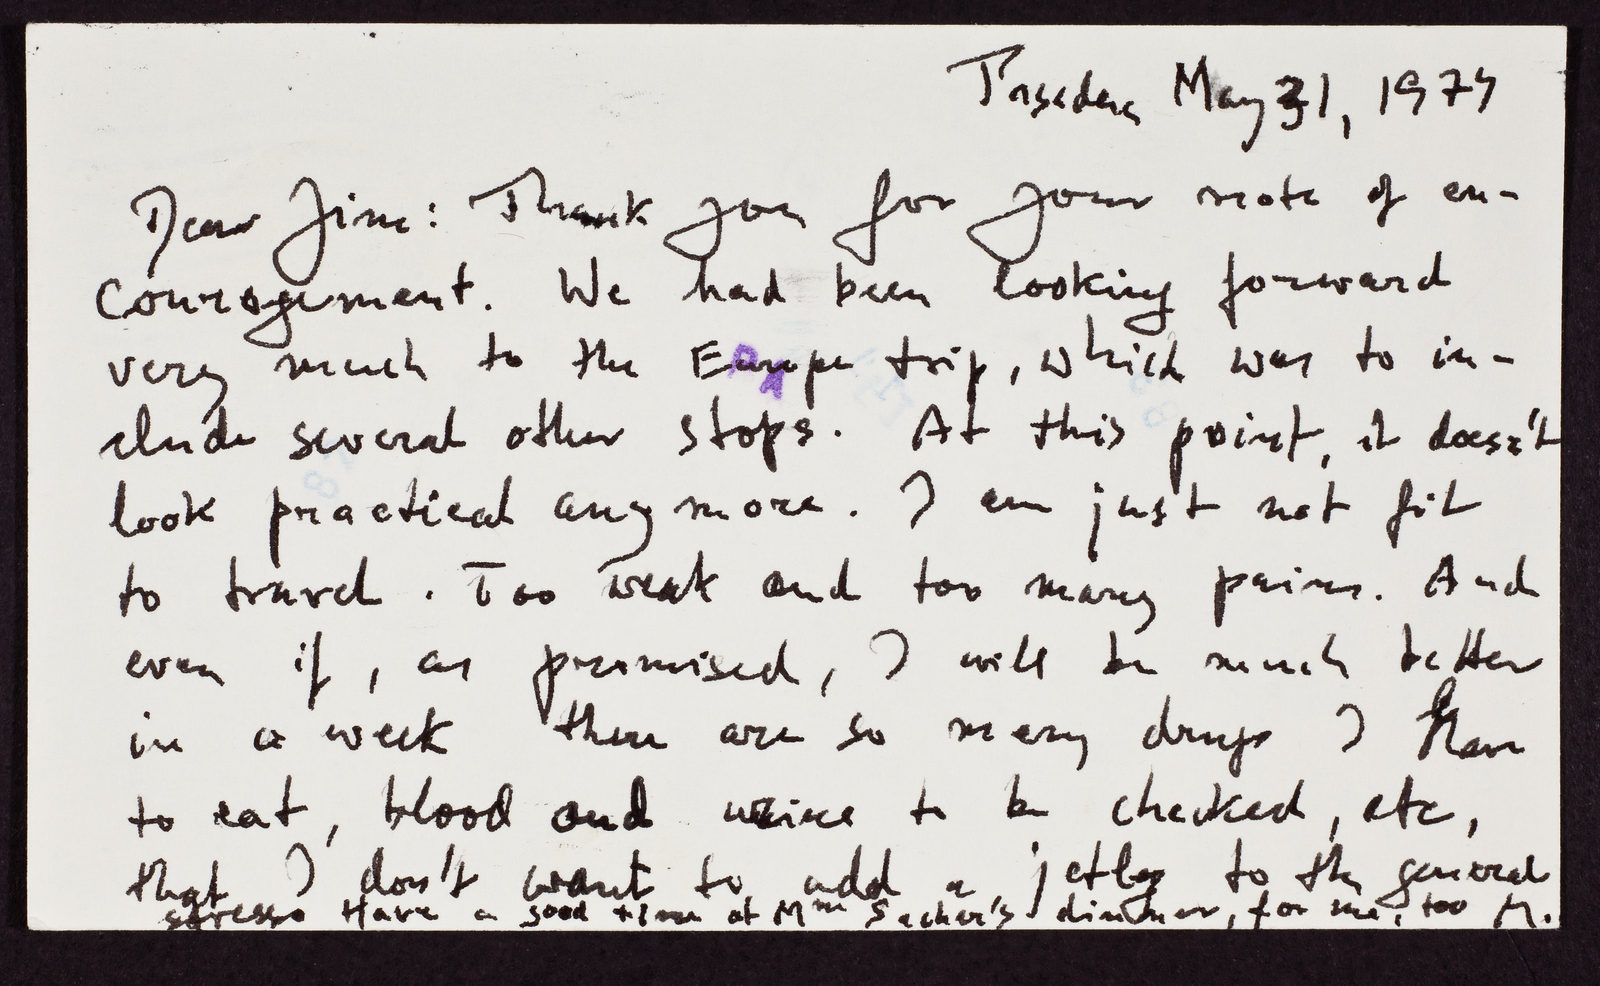 Pasadena May 31, 1979
Dear Jim: Thank you for your note of en-
couragement. We had been looking forward
very much to the Europe trip, which was to in-
clude several other stops. At this point, it doesn't
look practical anymore. I am just not fit
to travel. Too weak and too many pains. And
even if, as promised, I will be much better
in a week there are so many drugs I have
to eat, blood and urine to be checked, etc,
that I don't want to add a jetlag to the general
stress. Have a good time at Mme Sacher's dinner, for me, too M.